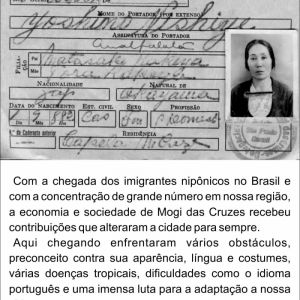 NOME DO PORTADOR (POR EXTENSO)
ASSINATURA DO PORTADOR
Analfabeta
FILIAÇÃO
NACIONALIDADE
NATURAL DE
Jap
Okayama
DATA DO NASCIMENTO
EST. CIVIL
COR
PROFISSÃO
Dia
Mês
Ano
Cas
N.º Caderneta anterior
RESIDÊNCIA
Capela
Com a chegada dos imigrantes nipônicos no Brasil e
com a concentração de grande número em nossa região,
a economia e sociedade de Mogi das Cruzes recebeu
contribuições que alteraram a cidade para sempre.
Aqui chegando enfrentaram vários obstáculos,
preconceito contra sua aparência, língua e costumes,
várias doenças tropicais, dificuldades como o idioma
português e uma imensa luta para a adaptação a nossa